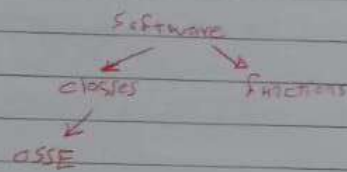 Software
classes functions
OSSE